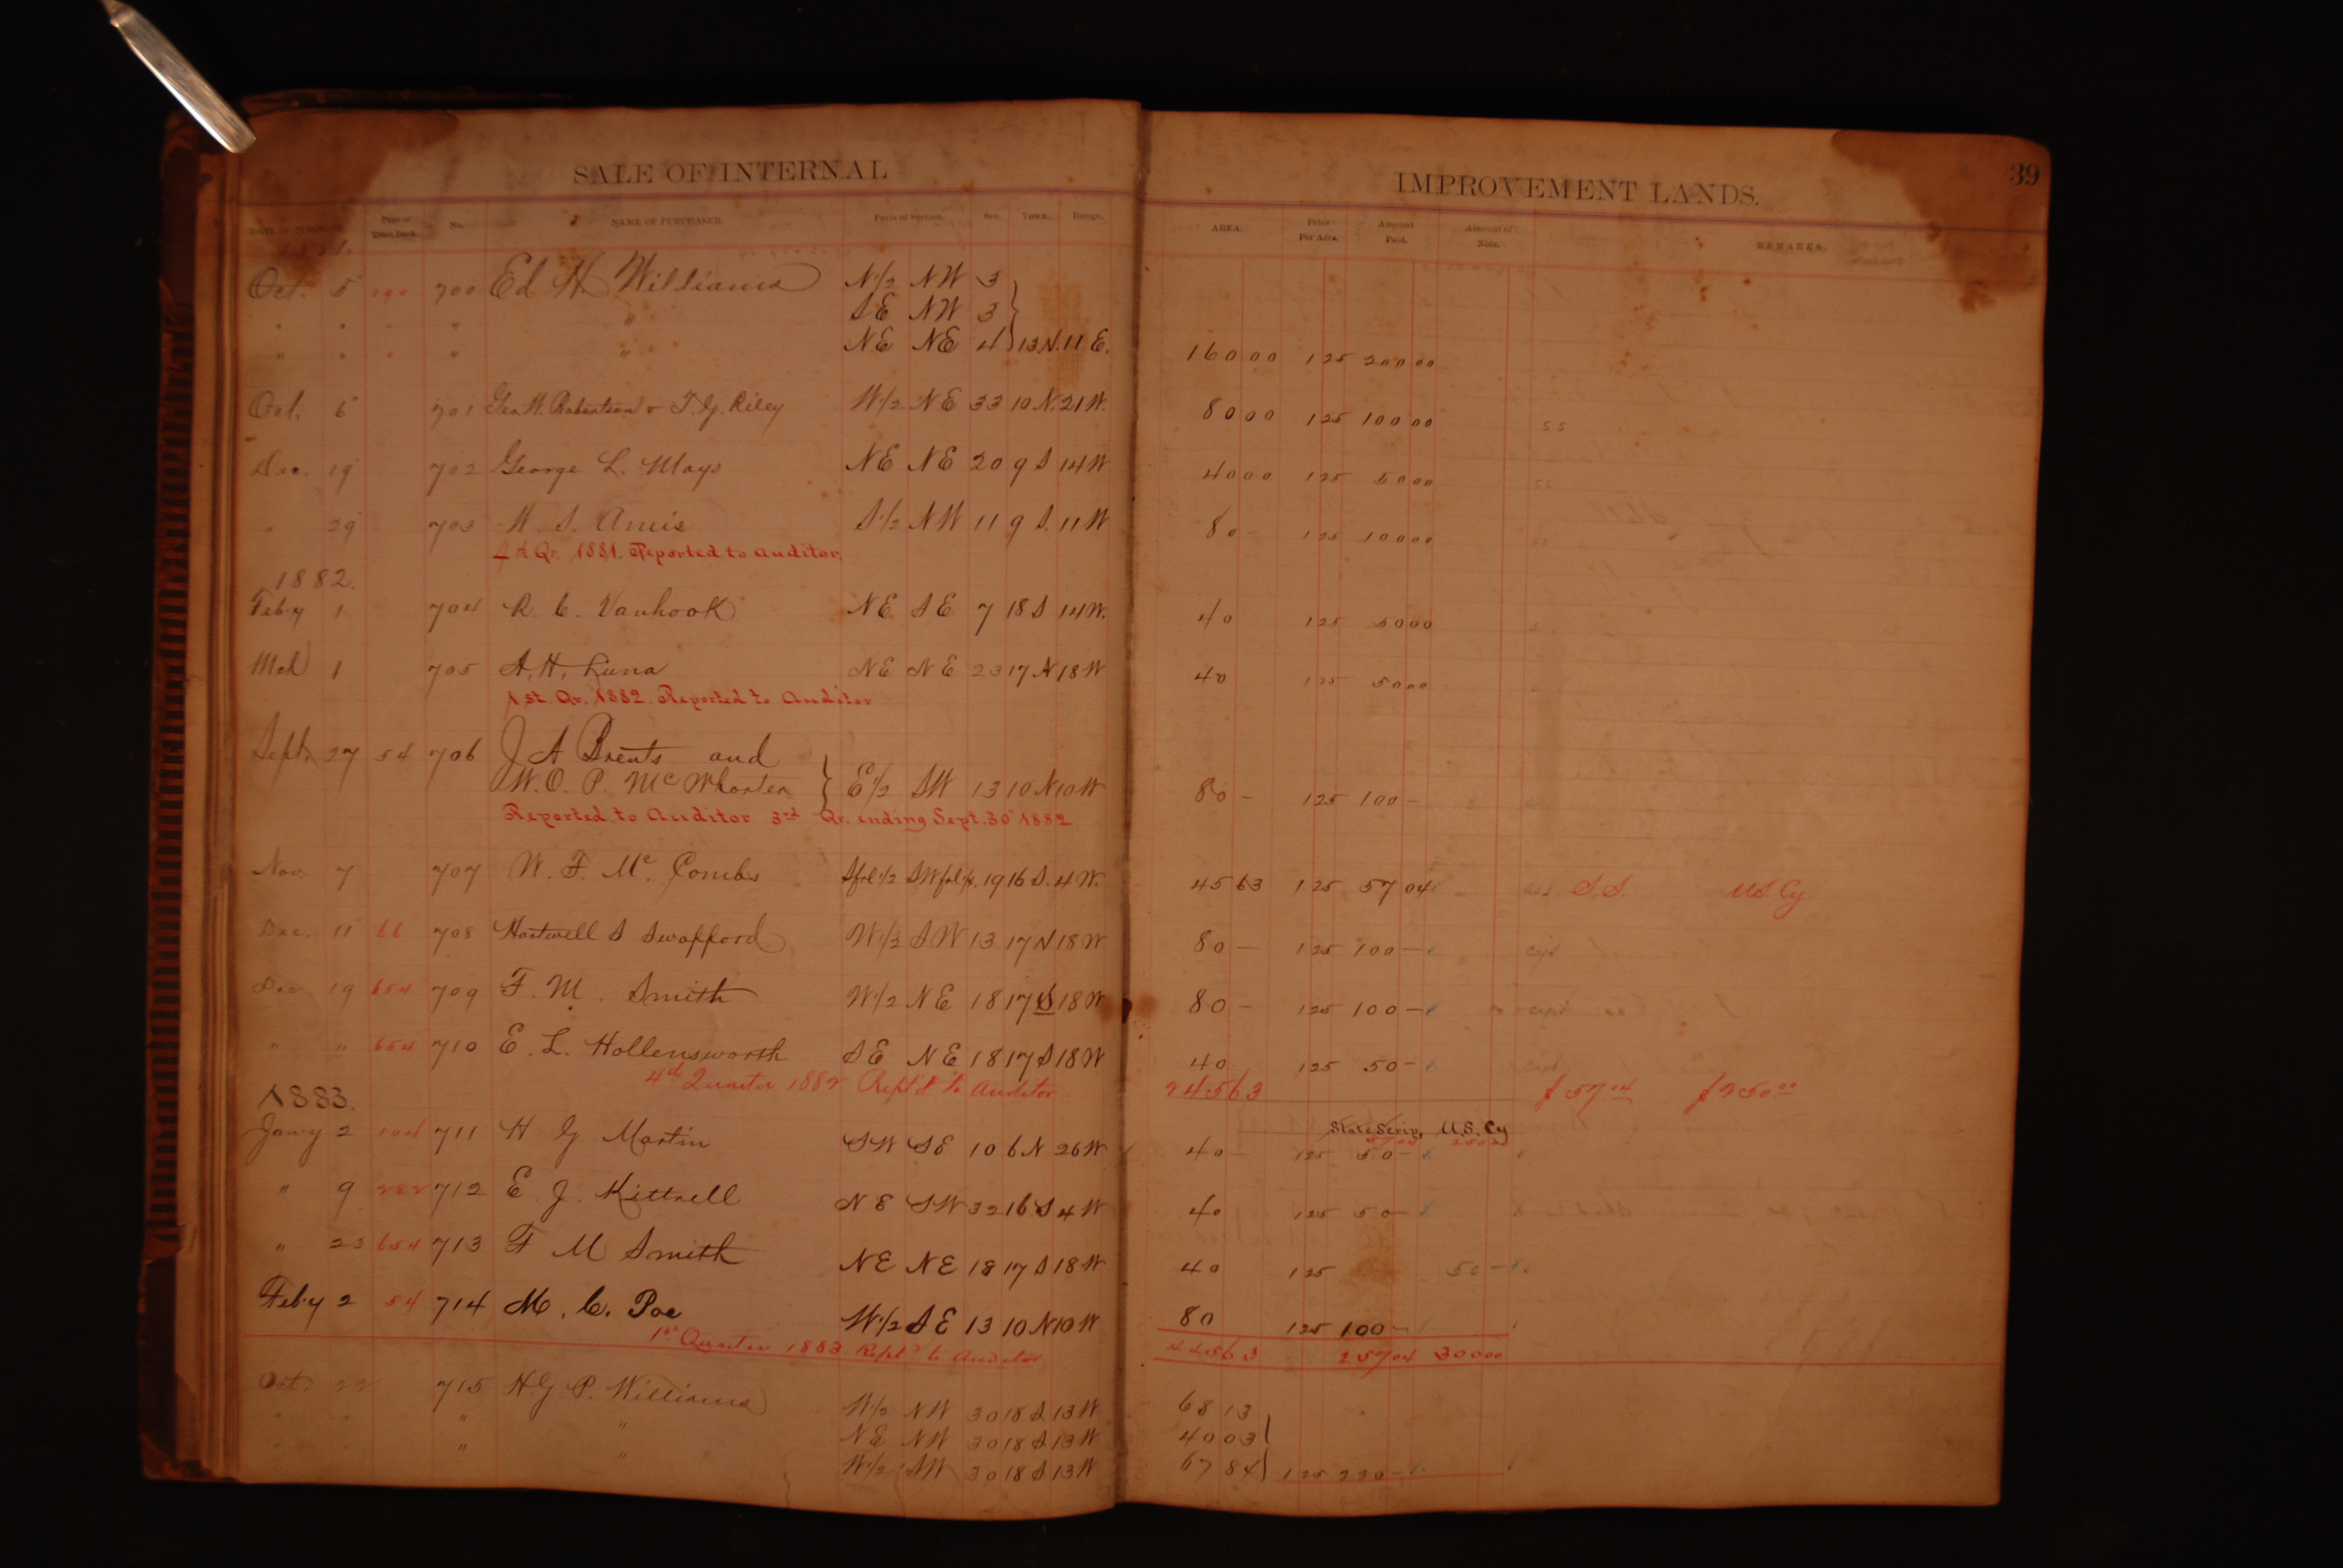 SALE OF INTERNAL IMPROVEMENT LANDS. 39
DATE OF PURCHASE. Page of Tract Book. No. NAME OF PURCHASER. Parts of Section. Sec. Town. Range. AREA. Price Per Acre. Amount Paid. Amount of Note. REMARKS.
1881.
Oct. 5 190 700 Ed H. Williams N 1/2 NW 3
" " " " " SE NW 3
" " " " " NE NE 4 13 N. 11 E. 160 00 1 25 200 00
Oct. 6 701 Geo. W. Robertson & T. G. Riley W 1/2 NE 33 10 N. 21 W. 80 00 1 25 100 00 SS
Dec. 19 702 George L. Mays NE NE 20 9 S 14 W 40 00 1 25 50 00 SS
" 29 703 S 1/2 NW 11 9 S. 11 W 80 - 1 25 100 00 SS
4th Qr. 1881. Reported to Auditor.
1882.
Feb'y 1 704 R. C. Vanhook NE SE 7 18 S 14 W. 40 1 25 50 00
Mch 1 705 A. H. Luna NE NE 23 17 N 18 W 40 1 25 50 00
1st. Qr. 1882. Reported to Auditor
Sept. 27 54 706 J A Brents and
W. O. P. McWhorter E 1/2 SW 13 10 N 10 W 80 - 1 25 100 -
Reported to Auditor 3rd Qr. ending Sept. 30 1882
Nov. 7 707 W. F. Mc Combs S frl 1/2 SW frl 1/4 19 16 S. 4 W. 45 63 1 25 57 04 S.S. U.S. Cy
Dec. 11 66 708 Hartwell S Swafford W 1/2 SW 13 17 N 18 W 80 - 1 25 100 -
Dec 19 654 709 F. M. Smith W 1/2 NE 18 17 S 18 W 80 - 1 25 100 -
" " 654 710 E. L. Hollensworth SE NE 18 17 S 18 W 40 1 25 50 -
4th Quarter 1882 Rept'd to Auditor 245 63 $57 04 $250 00
1883. State Scrip, U.S. Cy
57 04 250 00
Jan'y 2 104 711 H G Martin SW SE 10 6 N 26 W 40 - 1 25 50 -
" 9 282 712 E. J. Kittrell NE SW 32 16 S 4 W 40 1 25 50 -
" 23 654 713 F M Smith NE NE 18 17 S 18 W 40 1 25 50 -
Feb'y 2 54 714 M. C. Poe W 1/2 SE 13 10 N 10 W 80 1 25 100 -
1st Quarter 1883 Rept'd to Auditor 445 63 257 04 300 00
Oct. 22 715 H G P. Williams W 1/2 NW 30 18 S. 13 W 68 13
" " " " NE NW 30 18 S. 13 W 40 03
" " " " W 1/2 SW 30 18 S 13 W 67 84 1 25 220 -